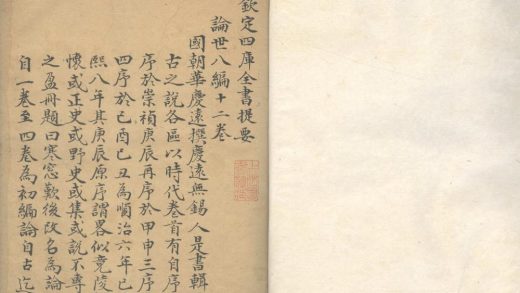 欽定四庫全書提要
論世八編十二卷
國朝華慶遠撰慶遠無錫人是書輯
古之說各區以時代卷首有自序
序於崇禎庚辰再序於甲申三序
四序於已酉已丑為順治六年已
熙八年其庚辰原序謂畧似竟陵
懷或正史或野史或集或說不專
之盈冊題曰寒窓歎後改名為論
自一卷至四卷為初編論自古迄